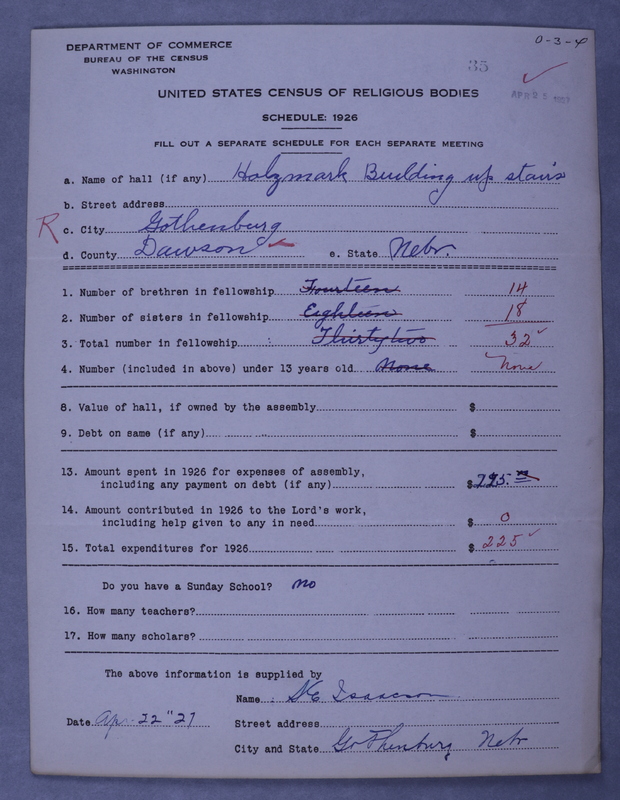 DEPARTMENT OF COMMERCE
BUREAU OF THE CENSUS
WASHINGTON
0-3-4
35
UNITED STATES CENSUS OF RELIGIOUS BODIES
SCHEDULE: 1926
FILL OUT A SEPARATE SCHEDULE FOR EACH SEPARATE MEETING
a. Name of hall (if any) Holzmark Building up stairs
b. Street address
R c. City Gothenburg
d. County Dawson e. State Nebr.
1. Number of brethren in fellowship Fourteen 14
2. Number of sisters in fellowship Eighteen 18
3. Total number in fellowship Thirtytwo 32
4. Number (included in above) under 13 years old None None
8. Value of hall, if owned by the assembly $
9. Debt on same (if any) $
13. Amount spent in 1926 for expenses of assembly,
including any payment on debt (if any) $
14. Amount contributed in 1926 to the Lord's work,
including help given to any in need $ 0
15. Total expenditures for 1926 $ 225
Do you have a Sunday School? no
16. How many teachers?
17. How many scholars?
The above information is supplied by
Name Isaacson
Date Apr. 22 " 27 Street address
City and State Gothenburg Nebr